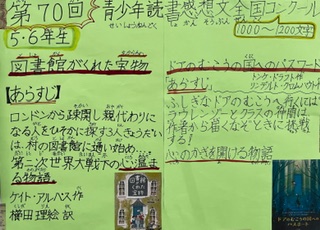 第70回 青少年読書感想文全国コンクール
せいしょうねんどくしょかんそうぶんぜんこく
5・6年生
1000〜1200文字
図書館がくれた宝物
【あらすじ】
ロンドンから疎開し親代わりに
なる人をひそかに探す3人きょうだい
は、村の図書館に通い始め
第二次世界大戦下の心温ま
る物語
ケイト・アルバス作
櫛田理絵 訳
ドアのむこうの国へのパスワード
トンケ・ドラフト作
リンデルト・クロムハウト
「あらすじ」
ふしぎなドアのむこうへ行くには
ラウレンゾーとクラスの仲間は、
作者から届くなぞときに挑戦
する!
心のかぎを開ける物語
図書館がくれた宝物
ドアのむこうの国への
パスワード